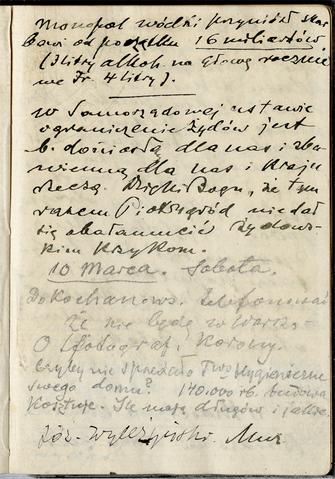 Monopol wódki przyniósł skar
bowi od początku 16 miliardów
(3 litry alkoh. na głowę roczn
we Fr. 4 litry).
W Samorządowej ustawie
ograniczenie żydów jest
b. doniosłą dla nas i zba
wienną dla nas i kraju
rzeczą. Dzięki Bogu, że tym
razem Piotrogród nie dał
się obałamucić żydows-
kim krzykom.
10 Marca. Sobota.
Do Kochanows. telefonować
że nie będę w Warsz.
O fotograf. Korony.
Czyby nie sprzedało Two Hygieniczne
swego domu? 140.000 rb. budowa
kosztuje. Ile mają długów i jakie.
Józ. Wylczyński. Muz.